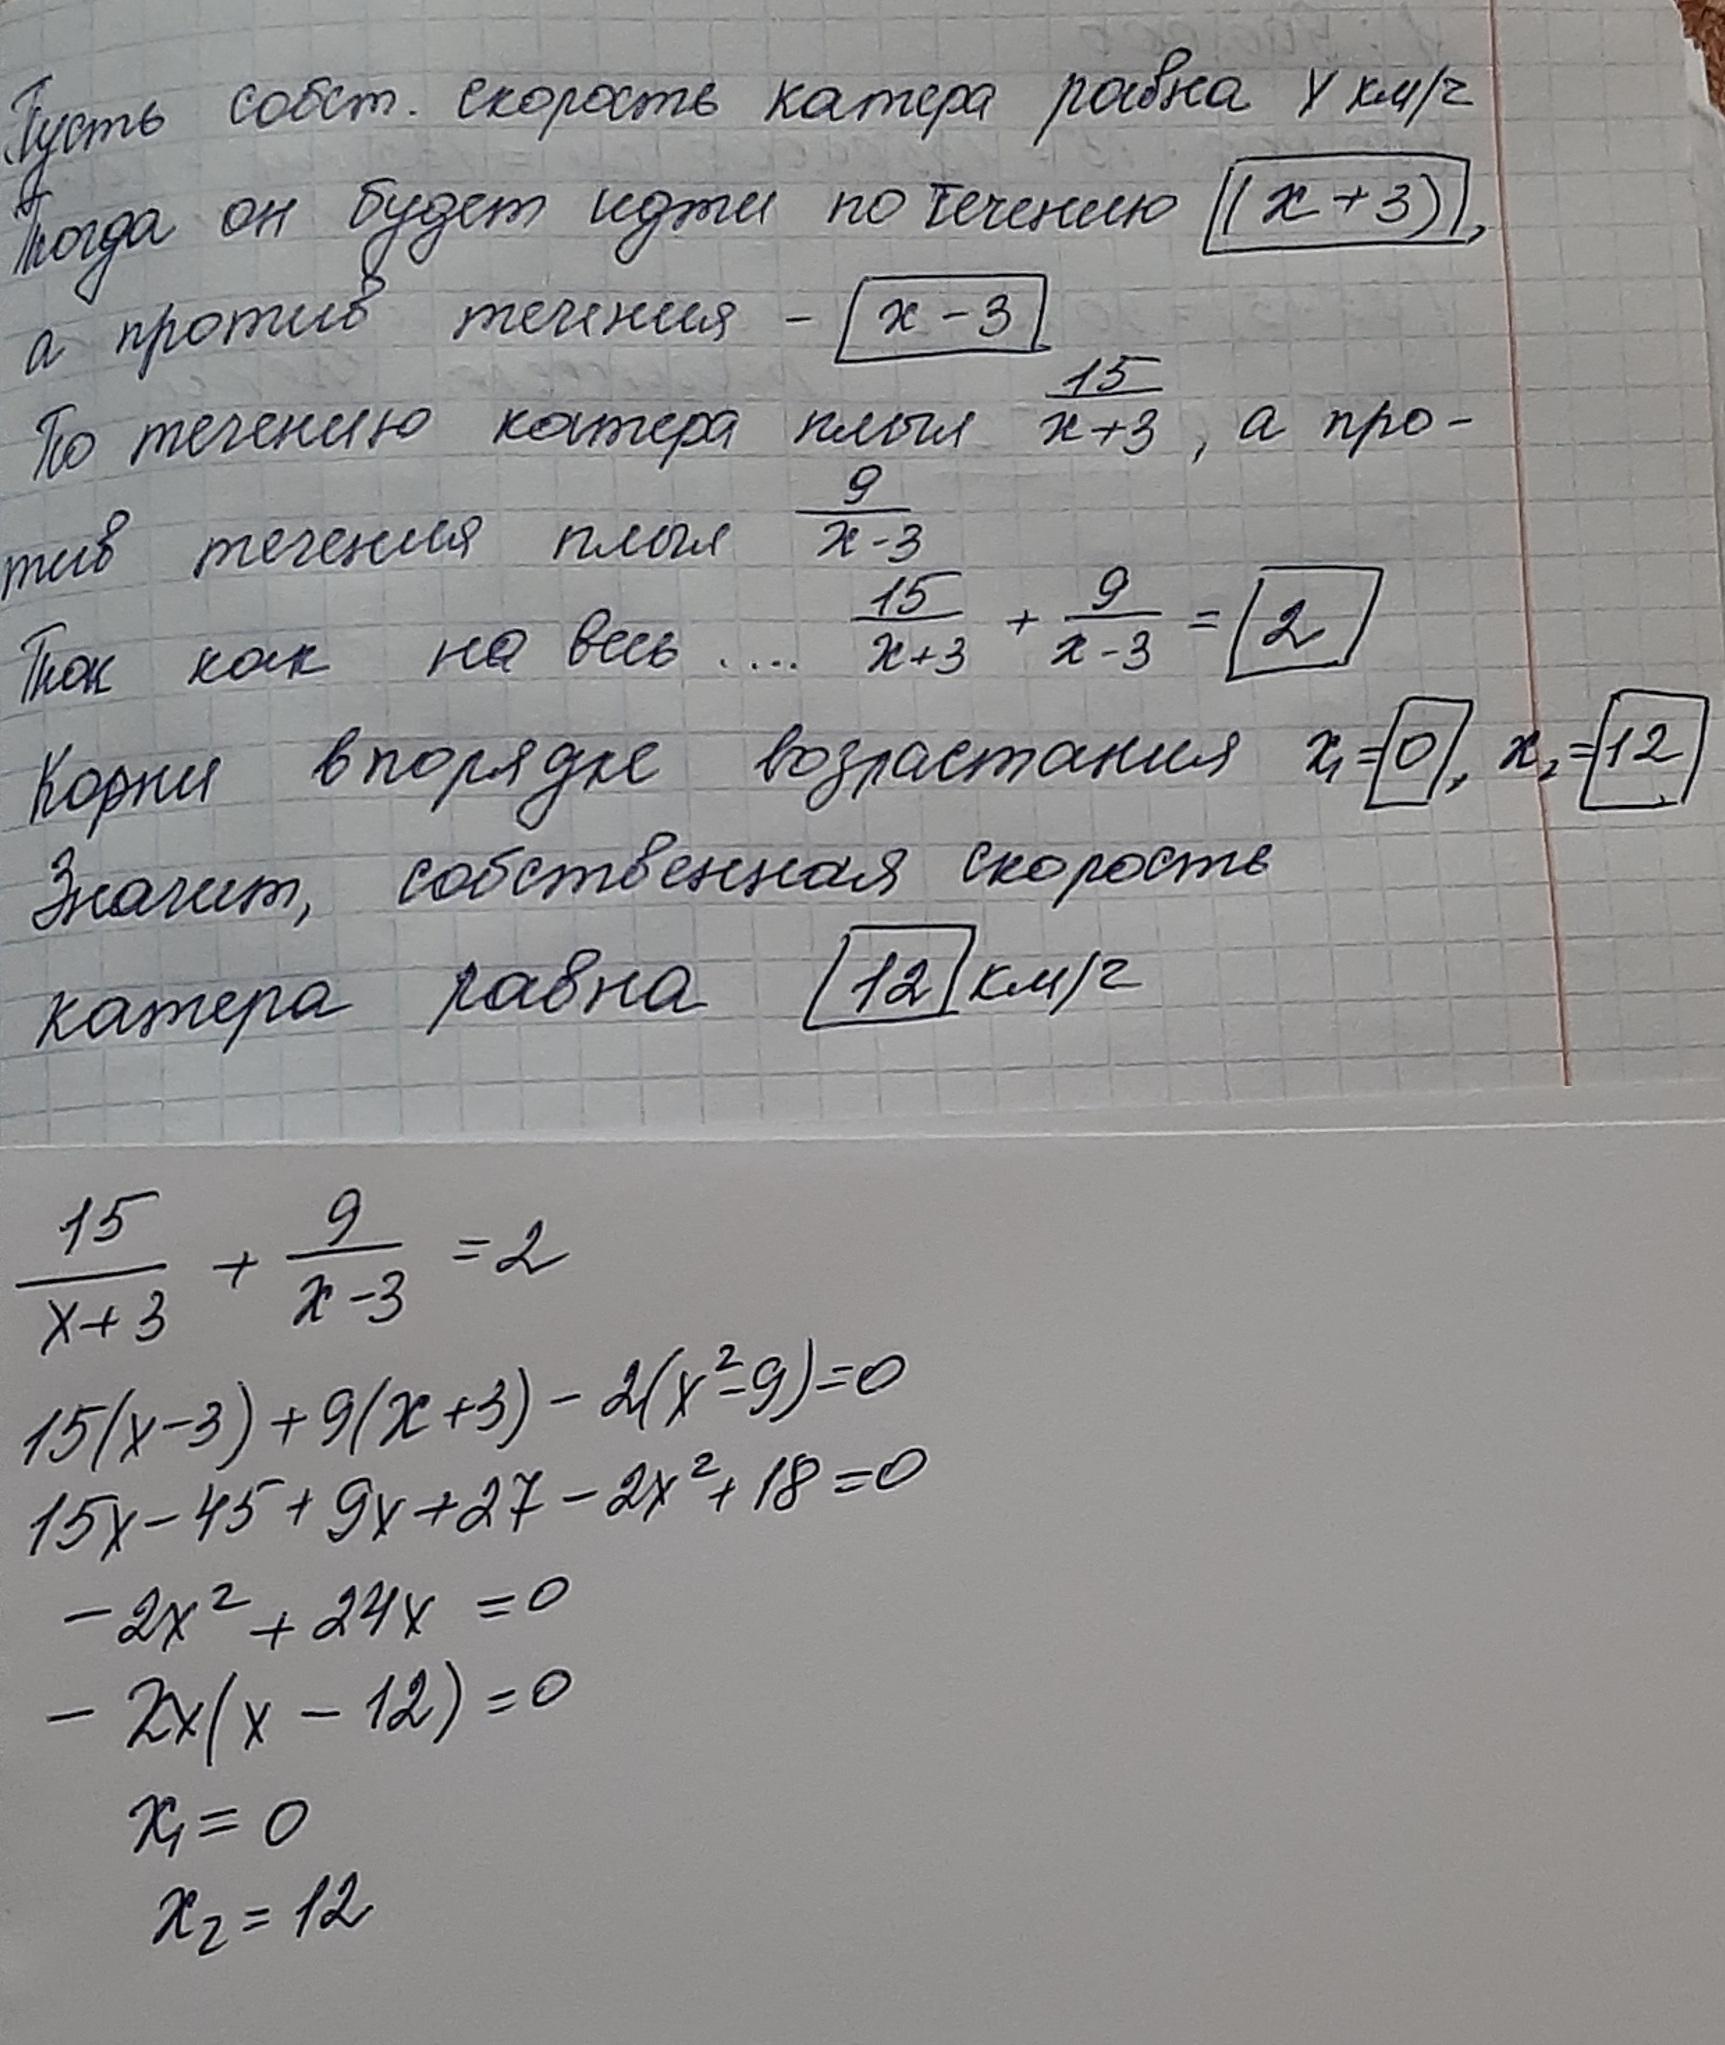 Пусть собст. скорость катера равна x км/г
Тогда он будет идти по течению (x+3),
а против течения - x-3
По течению катера плыл 15/(x+3), а про-
тив течения плыл 9/(x-3)
Так как на весь .... 15/(x+3) + 9/(x-3) = 2
Корни в порядке возрастания x₁=0, x₂=12
Значит, собственная скорость
катера равна 12 км/г
15/(x+3) + 9/(x-3) = 2
15(x-3)+9(x+3)-2(x²-9)=0
15x-45+9x+27-2x²+18=0
-2x²+24x=0
-2x(x-12)=0
x₁=0
x₂=12